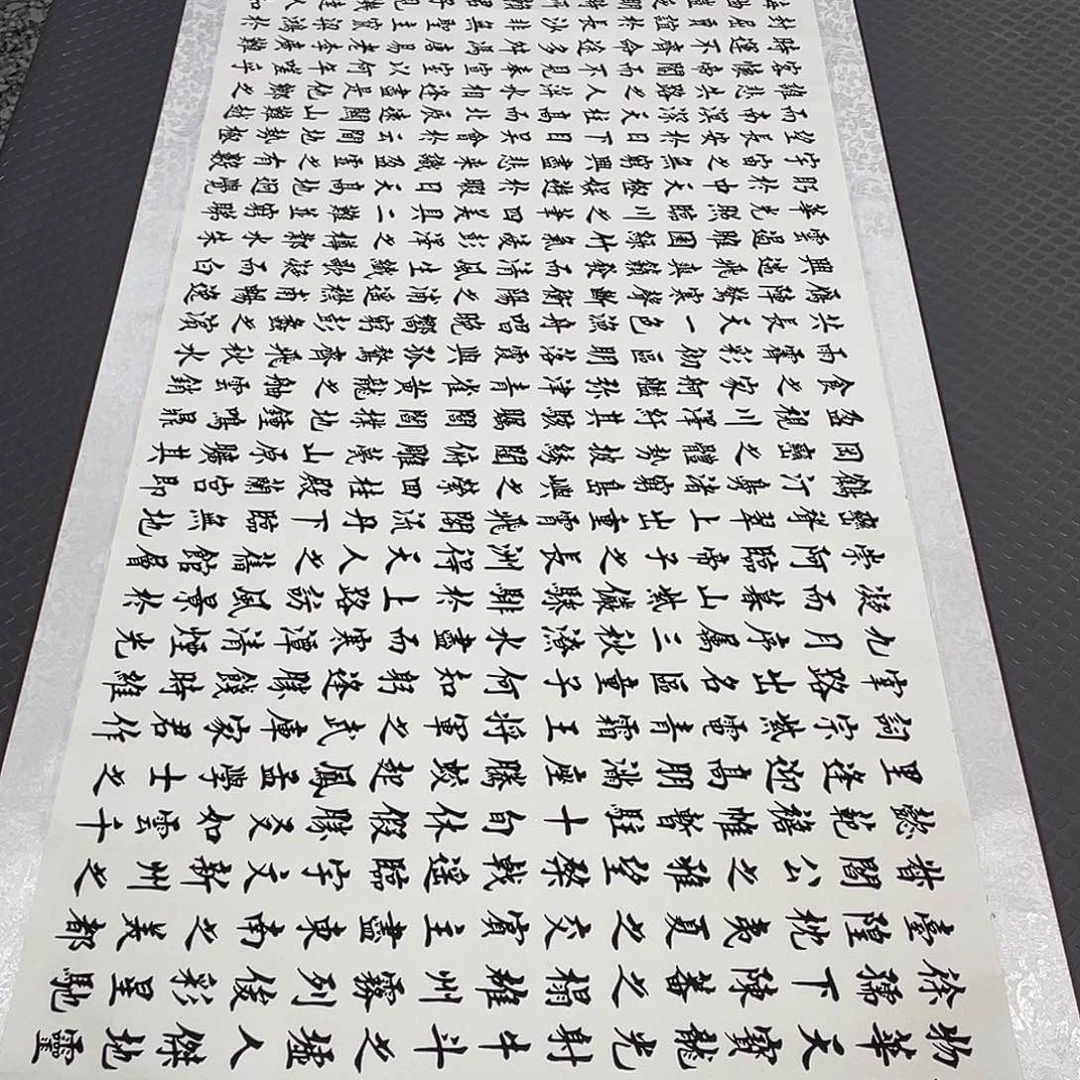 物華天寶龍光射牛斗之墟人傑地靈
徐孺下陳蕃之榻雄州霧列俊彩星馳
臺隍枕夷夏之交賓主盡東南之美都
督閻公之雅望棨戟遙臨宇文新州之
懿範襜帷暫駐十旬休假勝友如雲千
里逢迎高朋滿座騰蛟起鳳孟學士之
詞宗紫電青霜王將軍之武庫家君作
宰路出名區童子何知躬逢勝餞時維
九月序屬三秋潦水盡而寒潭清煙光
凝而暮山紫儼驂騑於上路訪風景於
崇阿臨帝子之長洲得天人之舊館層
巒聳翠上出重霄飛閣流丹下臨無地
鶴汀鳧渚窮島嶼之縈回桂殿蘭宮即
岡巒之體勢披繡闥俯雕甍山原曠其
盈視川澤紆其駭矚閭閻撲地鐘鳴鼎
食之家舸艦彌津青雀黃龍之舳雲銷
雨霽彩徹區明落霞與孤鶩齊飛秋水
共長天一色漁舟唱晚響窮彭蠡之濱
雁陣驚寒聲斷衡陽之浦遙襟甫暢逸
興遄飛爽籟發而清風生纖歌凝而白
雲遏睢園綠竹氣凌彭澤之樽鄴水朱
華光照臨川之筆四美具二難並窮睇
眄於中天極娛遊於暇日天高地迥覺
宇宙之無窮興盡悲來識盈虛之有數
望長安於日下目吳會於雲間地勢極
而南溟深天柱高而北辰遠關山難越
誰悲失路之人萍水相逢盡是他鄉之
客懷帝閽而不見奉宣室以何年嗟乎
時運不齊命途多舛馮唐易老李廣難
封屈賈誼於長沙非無聖主竄梁鴻於